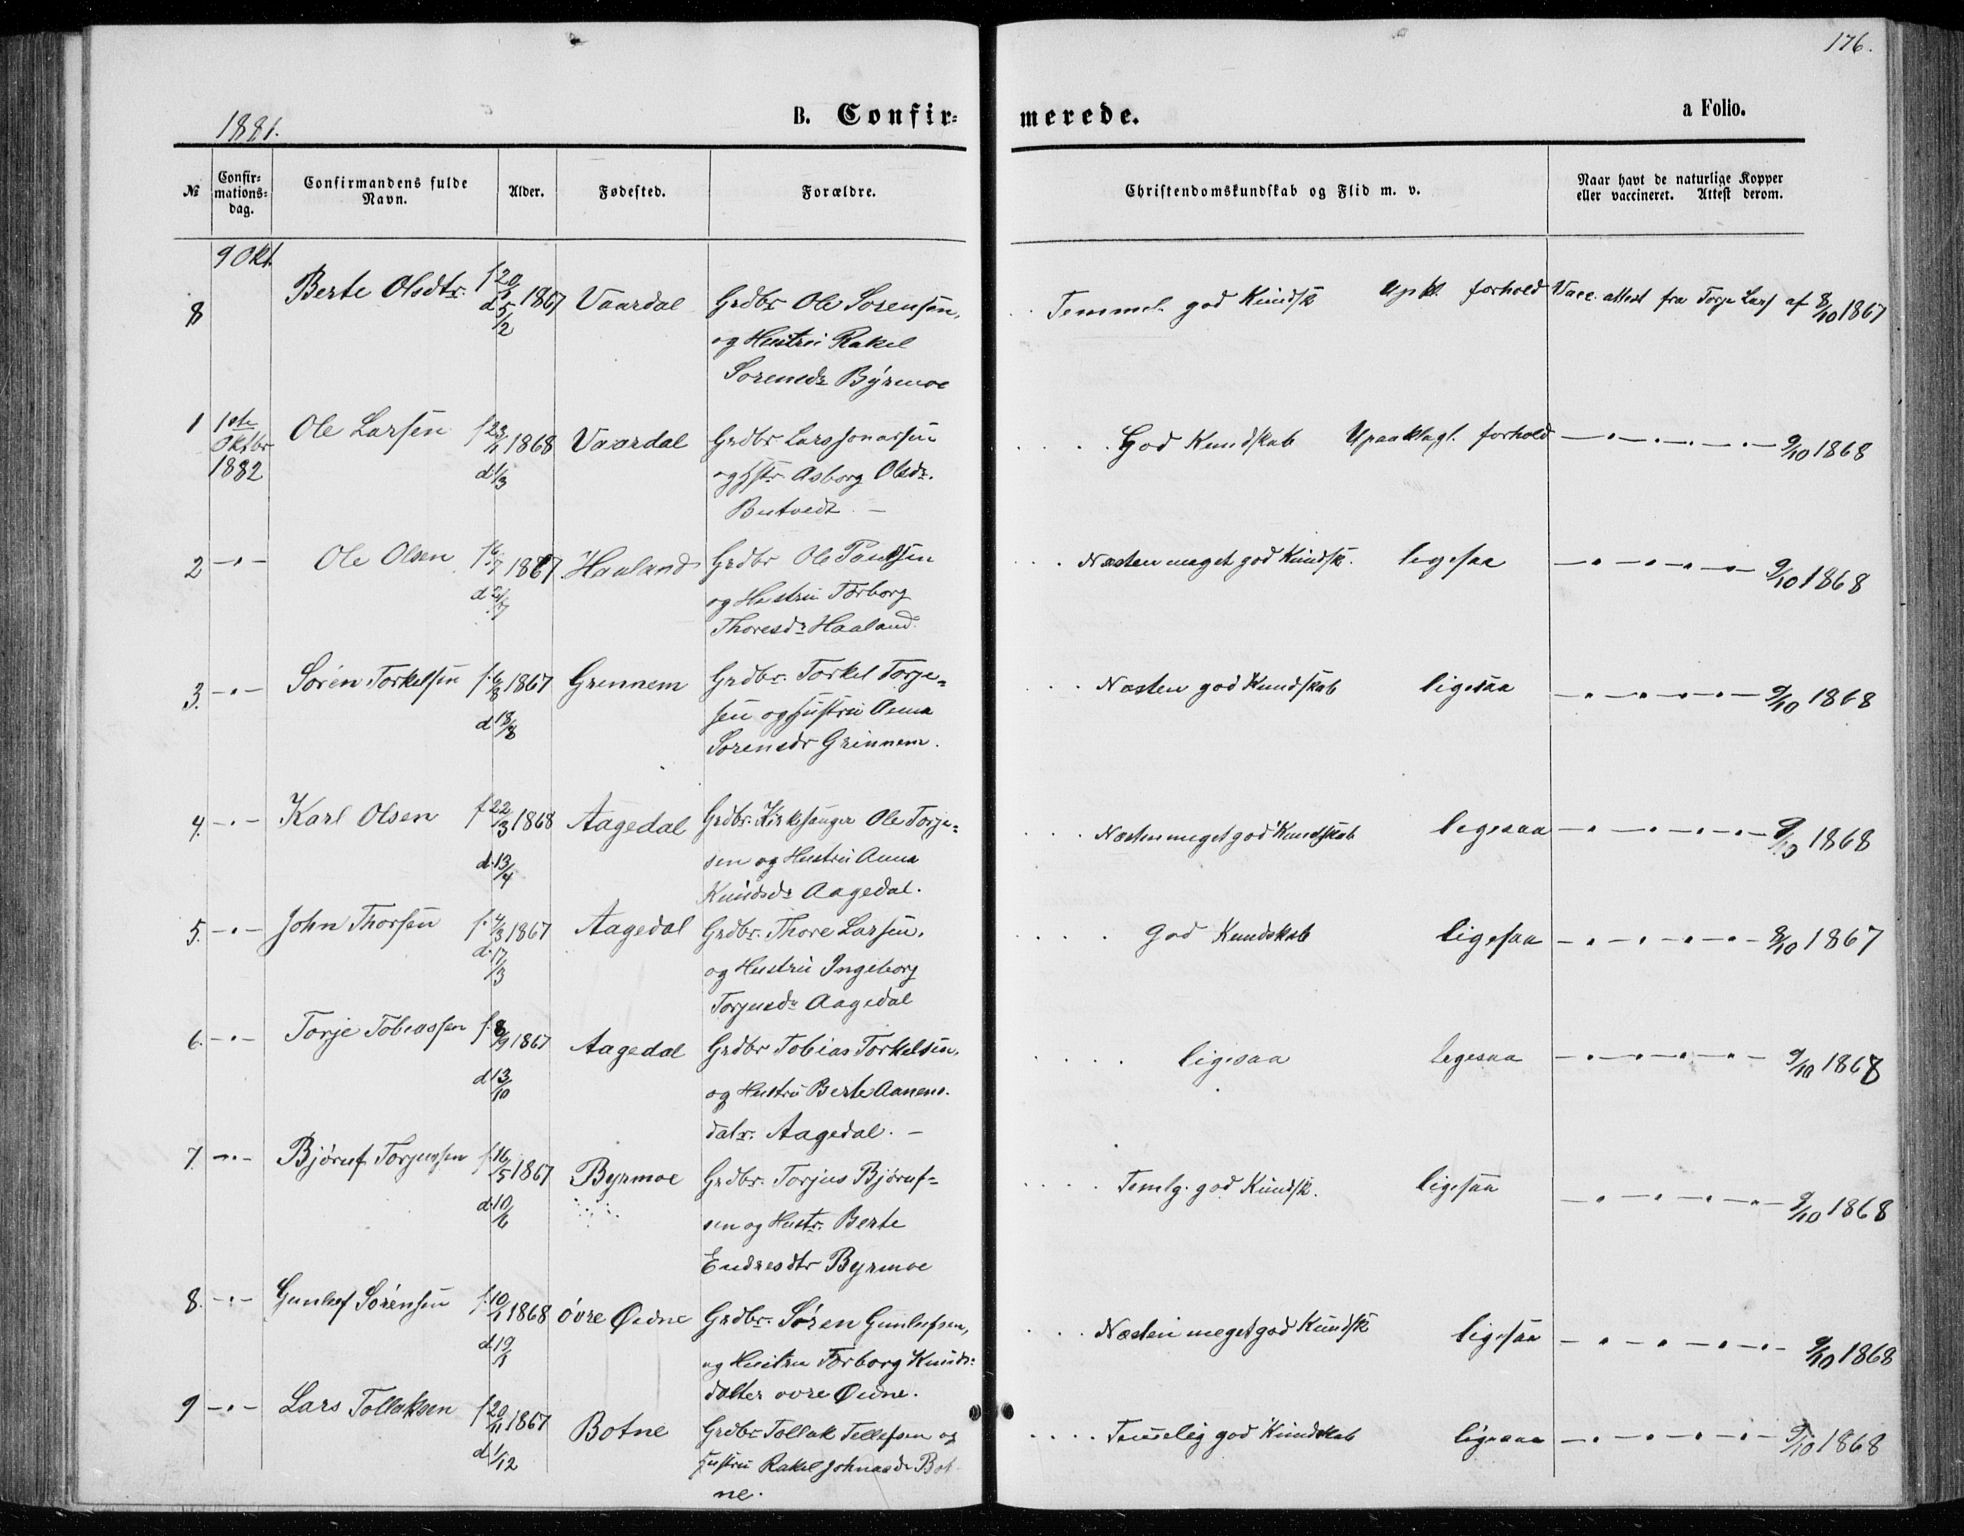 176.
1881.
B. Confirmerede.
a Folio.
№
Confir-
mations-
dag.
Confirmandens fulde
Navn.
Alder.
Fødested.
Forældre.
Christendomskundskab og Flid m. v.
Naar havt de naturlige Kopper
eller vaccineret. Attest derom.
9 Okt.
8 Berte Olsdtr. f 20/1 1867 d 5/2 Vaardal Grdbr Ole Sorensen, Temmel. god Kundsk Upkl. forhold Vacc. attest fra Torje Lars af 8/10 1867
og Hustru Rakel
Sorensdr Byrmoe
1 1ste Oktbr 1882 Ole Larsen f 23/1 1868 d 1/3 Vaardal Grdbr Lars Jonassen God Kundskab Upaaklagl. forhold — " — " — " — 9/10 1868
og Hstr Asborg Olsdr.
Butvedt —
2 — " — Ole Olsen f 6/7 1867 d 21/7 Haaland Grdbr Ole Paulsen Næsten meget god Kundsk. ligesaa — " — " — " — 9/10 1868
og Hustru Torborg
Thoresdr Haaland.
3. — " — Søren Torkelsen f. 6/8 1867 d 18/8 Grennem Grdbr. Torkel Torje- Næsten god Kundskab ligesaa — " — " — " — 9/10 1868
sen og Hustru Anna
Sorensdr Grinnem.
4. — " — Karl Olsen f 22/3 1868 d. 13/4 Aagedal Grdbr. Kirkesanger Ole Torje- Næsten meget god Kundskab ligesaa — " — " — " — 9/10 1868
sen og Hustru Anna
Knudsdr Aagedal.
5. — " — John Thorsen f. 4/3 1867 d. 17/3 Aagedal Grdbr. Thore Larsen, God Kundskab ligesaa — " — " — " — 8/10 1867
og Hustru Ingeborg
Torjusdr Aagedal
6. — " — Torje Tobiassen f. 8/9 1867 d 13/10 Aagedal Grdbr Tobias Torkelsen, ligesaa ligesaa — " — " — " — 9/10 1868
og Hustru Berte Aanens-
datr. Aagedal. —
7. — " — Bjørnf Torjussen f. 16/5 1867 d. 10/6 Byrmoe Grdbr. Torjus Bjørnf- Temlg. god Kundsk. ligesaa — " — " — " — 9/10 1868
sen og Hustr. Berte
Endresdtr Byrmoe
8. — " — Gunlef Sørensen f. 10/1 1868 d 19/1 øvre Øidne Grdbr. Søren Gunlefsen, Næsten meget god Kundsk ligesaa — " — " — " — 9/10 1868
og Hustru Torborg Knuds-
datter ovre Øidne.
9 — " — Lars Tollaksen f 20/11 1867 d 1/12 Botne Grdbr Tollak Tellefsen og Temmelig god Kundskab ligesaa — " — " — " — 9/10 1868
Hustru Rakel Johnasdr Bot-
ne.